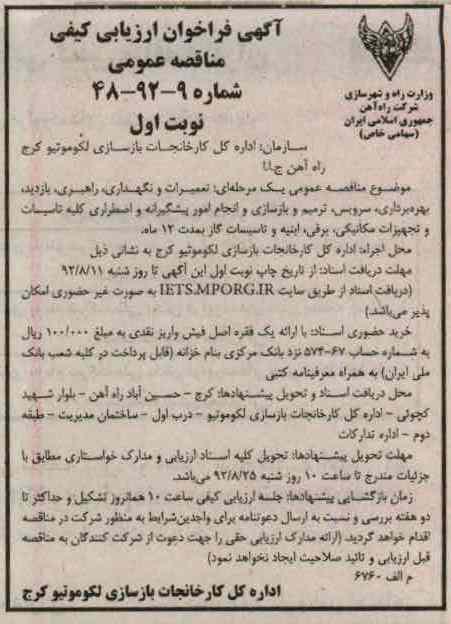 آگهی فراخوان ارزیابی کیفی
مناقصه عمومی
شماره ۹-۹۲-۴۸
نوبت اول
وزارت راه و شهرسازی
شرکت راه‌آهن
جمهوری اسلامی ایران
(سهامی خاص)
سازمان: اداره کل کارخانجات بازسازی لکوموتیو کرج
راه آهن ج.ا.ا
موضوع مناقصه عمومی یک مرحله‌ای: تعمیرات و نگهداری، راهبری، بازدید،
بهره‌برداری، سرویس، ترمیم و بازسازی و انجام امور پیشگیرانه و اضطراری کلیه تاسیسات
و تجهیزات مکانیکی، برقی، ابنیه و تاسیسات گاز بمدت ۱۲ ماه.
محل اجراء: اداره کل کارخانجات بازسازی لکوموتیو کرج به نشانی ذیل
مهلت دریافت اسناد: از تاریخ چاپ نوبت اول این آگهی تا روز شنبه ۹۲/۸/۱۱
(دریافت اسناد از طریق سایت IETS.MPORG.IR به صورت غیر حضوری امکان
پذیر می‌باشد.)
خرید حضوری اسناد: با ارائه یک فقره اصل فیش واریز نقدی به مبلغ ۱۰۰/۰۰۰ ریال
به شماره حساب ۶۷-۵۷۴ نزد بانک مرکزی بنام خزانه (قابل پرداخت در کلیه شعب بانک
ملی ایران) به همراه معرفینامه کتبی
محل دریافت اسناد و تحویل پیشنهادها: کرج - حسین آباد راه آهن - بلوار شهید
کچوئی - اداره کل کارخانجات بازسازی لکوموتیو - درب اول - ساختمان مدیریت - طبقه
دوم - اداره تدارکات
مهلت تحویل پیشنهادها: تحویل کلیه اسناد ارزیابی و مدارک خواستاری مطابق با
جزئیات مندرج تا ساعت ۱۰ روز شنبه ۹۲/۸/۲۵ می‌باشد.
زمان بازگشایی پیشنهادها: جلسه ارزیابی کیفی ساعت ۱۰ همانروز تشکیل و حداکثر تا
دو هفته بررسی و نسبت به ارسال دعوتنامه برای واجدین‌شرایط به منظور شرکت در مناقصه
اقدام خواهد گردید (ارائه مدارک ارزیابی حقی را جهت دعوت از شرکت کنندگان به مناقصه
قبل ارزیابی و تائید صلاحیت ایجاد نخواهد نمود)
م الف ۶۷۶۰
اداره کل کارخانجات بازسازی لکوموتیو کرج